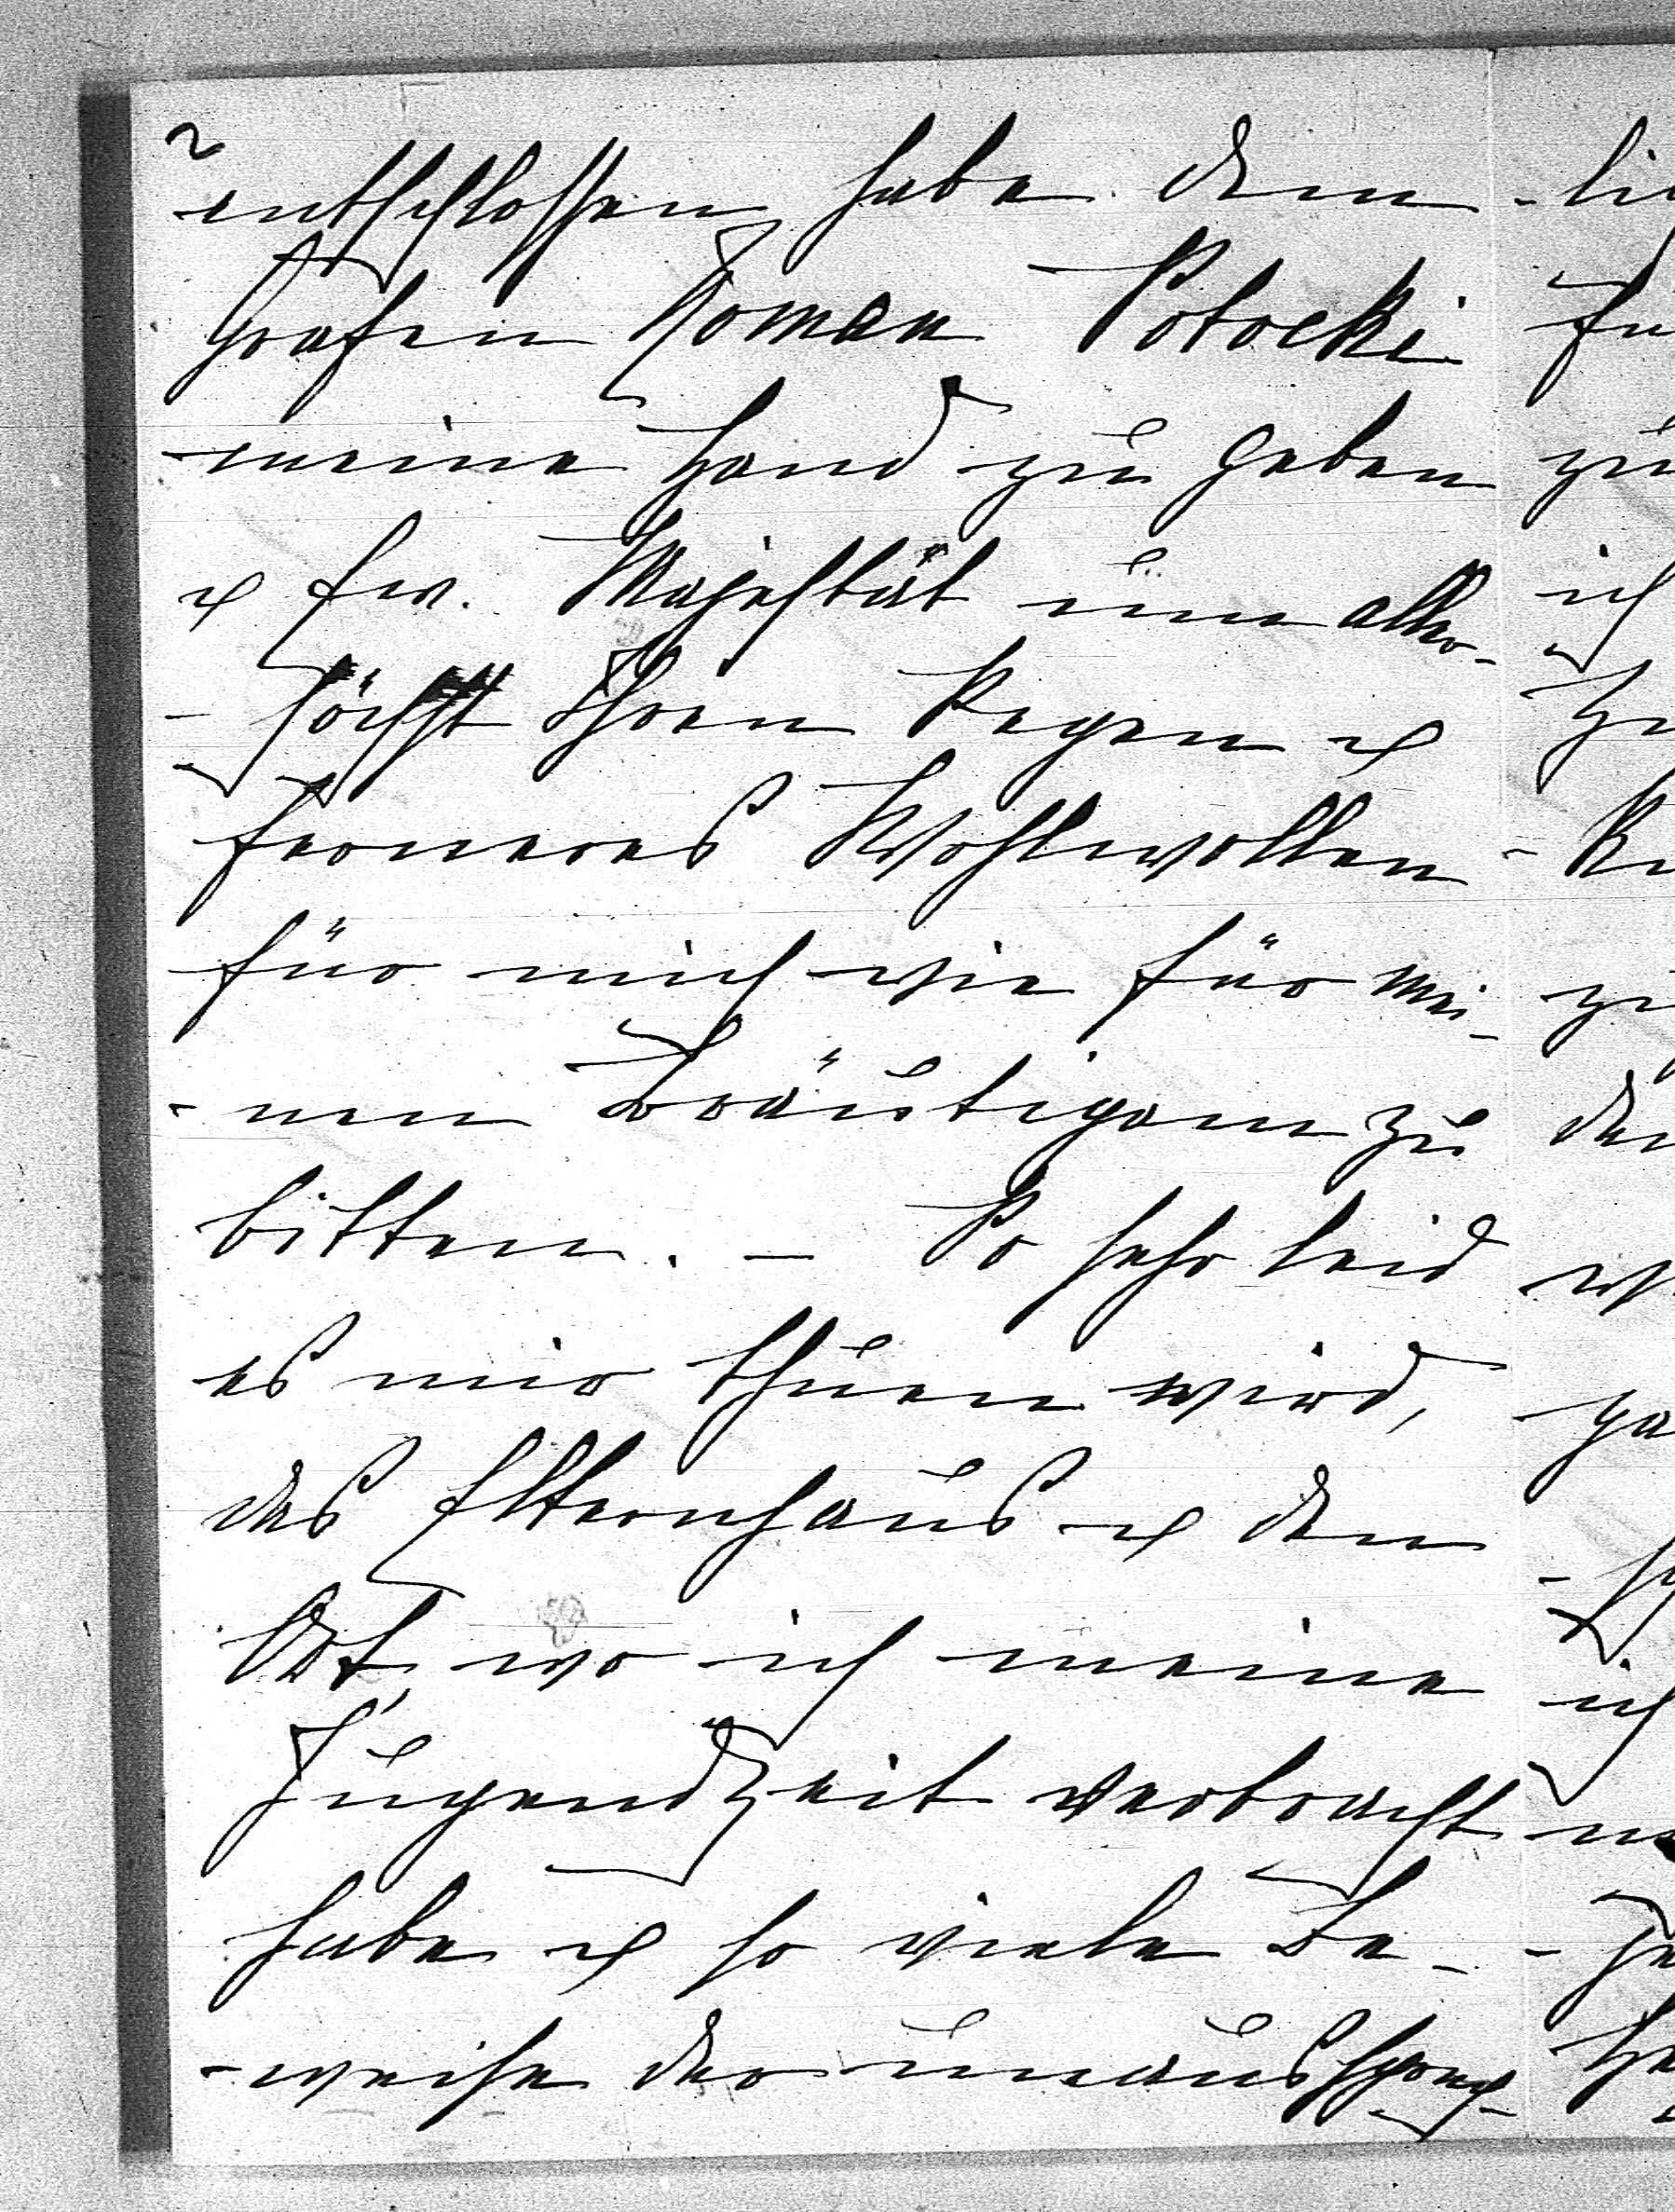 2
entschlossen habe dem
Grafen Roman Potocki
meine Hand zu geben
u Ew. Majestät um aller-
-höchst Ihren Segen u
ferneres Wohlwollen
für mich wie für mei-
-nen Bräutigam zu
bitten. – So sehr leid
es mir thuen wird,
das Elternhaus u den
Ort, wo ich meine
Jugendzeit verbracht
habe u so viele Be-
-weise der unaussprech-